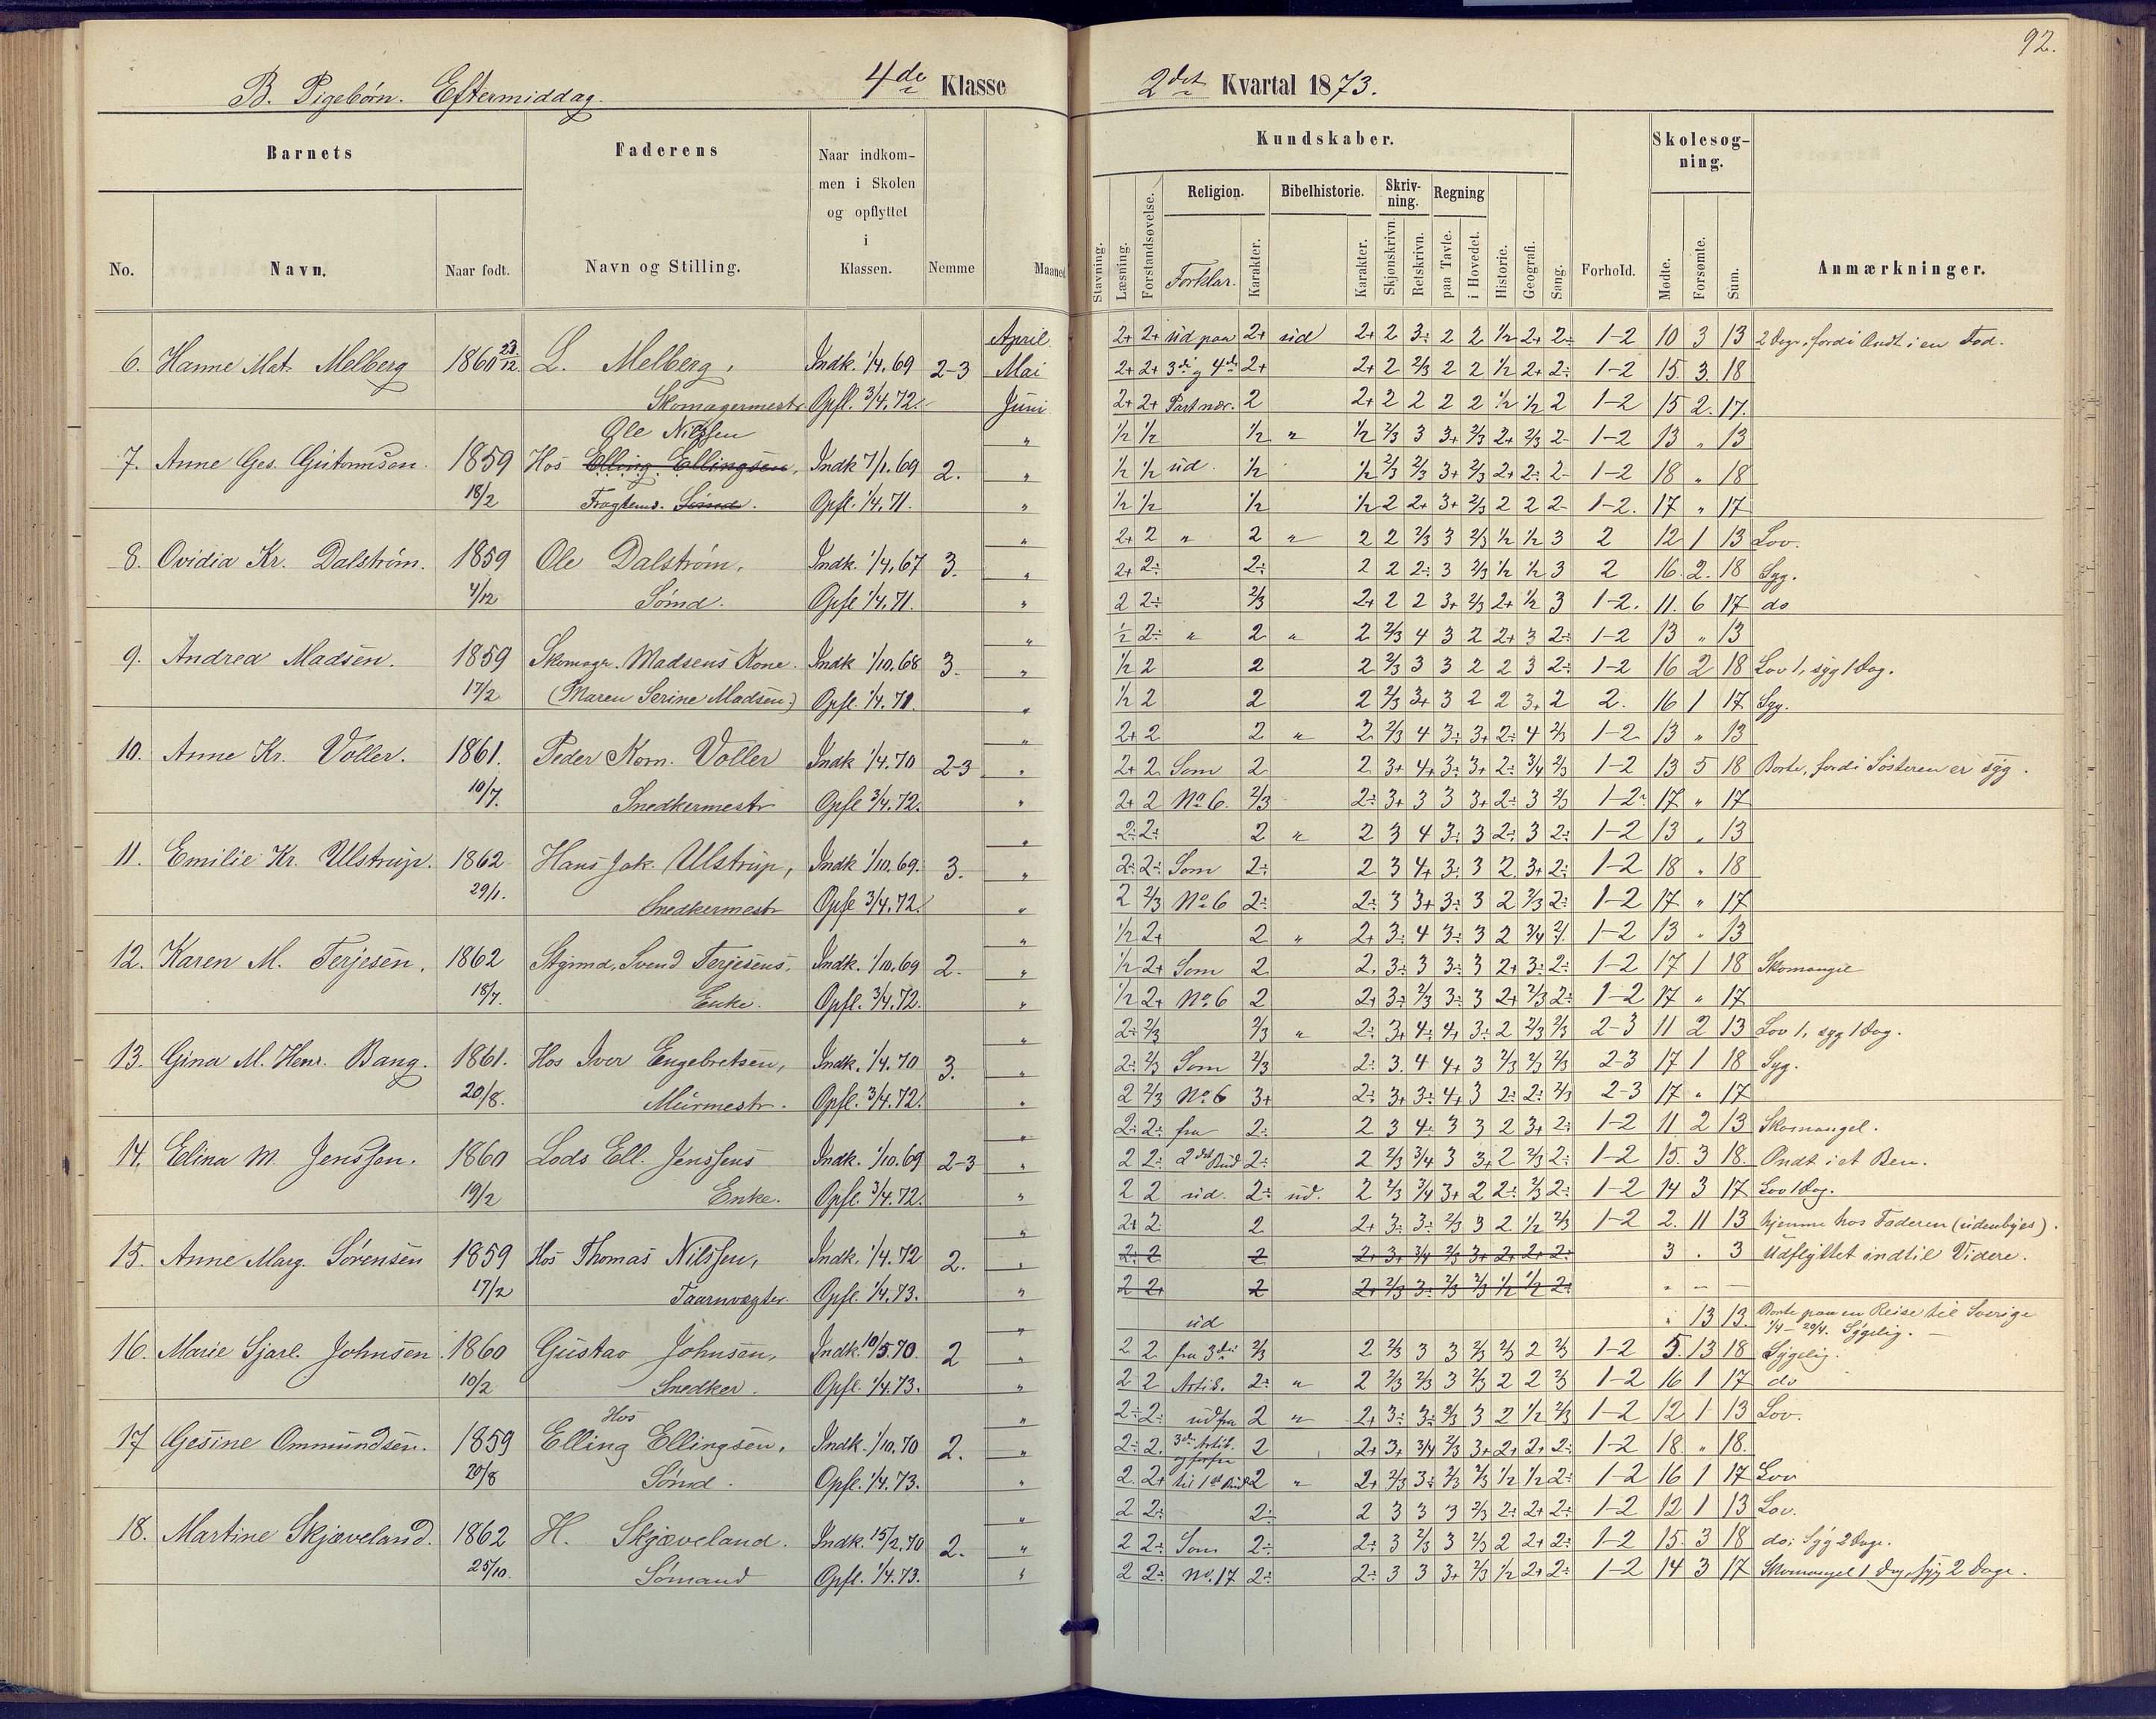 92.
B. Pigebørn. Eftermiddag. 4de Klasse 2det Kvartal 1873.
Barnets Faderens Naar indkommen i Skolen og opflyttet i Klassen. Nemme Maaned
No. Navn. Naar født. Navn og Stilling.
Kundskaber. Forhold. Skolesøgning. Anmærkninger.
Stavning. Læsning. Forstandsøvelse. Religion. Forklar. Karakter. Bibelhistorie. Karakter. Skrivning. Skjønskrivn. Retskrivn. Regning paa Tavle. i Hovedet. Historie. Geografi. Sang. Mødte. Forsømte. Sum.
April 2+ 2+ ud paa 2+ ud 2+ 2 3÷ 2 2 1/2 2+ 2÷ 1-2 10 3 13 2 Dage, fordi Ondt i en Fod.
6. Hanne Mat. Melberg 1860 23/12. L. Melberg, Indk. 1/4. 69 2-3 Mai 2+ 2+ 3die og 4de 2+ 2+ 2 2/3 2 2 1/2 2+ 2÷ 1-2 15. 3. 18
Skomagermestr Opfl. 3/4. 72. Juni 2+ 2+ Part nær. 2 2+ 2 2 2 2 1/2 1/2 2 1-2 15 2. 17.
Ole Nilssen " 1/2 1/2 1/2 " 1/2 2/3 3 3+ 2/3 2+ 2/3 2- 1-2 13 " 13
7. Anne Ges. Gutormsen. 1859 Hos Elling Ellingsen, Indk 7/1. 69 2. " 1/2 1/2 ud. 1/2 1/2 2/3 2/3 3+ 2/3 2+ 2÷ 2- 1-2 18 " 18
18/2 Fragtemd. Sømd. Opfl. 1/4. 71. " 1/2 1/2 1/2 1/2 2 2+ 3+ 2/3 2 2 2- 1-2. 17 " 17
" 2+ 2 " 2 " 2 2 2/3 3 2/3 1/2 1/2 3 2 12 1 13 Lov.
8. Ovidia Kr. Dalstrøm. 1859 Ole Dalstrøm, Indk. 1/4. 67 3. " 2+ 2÷ 2÷ 2 2 2÷ 3 2/3 1/2 1/2 3 2 16. 2. 18 Syg.
4/12 Sømd. Opfl 1/4. 71. " 2 2÷ 2/3 2+ 2 2 3+ 2/3 2+ 1/2 3 1-2. 11. 6 17 do
" 1/2 2÷ " 2 " 2 2/3 4 3 2 2+ 3 2÷ 1-2 13 " 13
9. Andrea Madsen. 1859 Skomagr. Madsens Kone. Indk 1/10. 68 3. " 1/2 2 2 2 2/3 3 3 2 2 3 2÷ 1-2 16 2 18 Lov 1, syg 1 Dag.
17/2 (Maren Serine Madsen.) Opfl. 1/4. 71. " 1/2 2 2 2 2/3 3+ 3 2 2 3+ 2 2. 16 1 17 Syg.
" 2+ 2 2 " 2 2/3 4 3÷ 3+ 2÷ 4 2/3 1-2 13 " 13
10. Anne Kr. Voller. 1861. Peder Korn. Voller Indk 1/4. 70 2-3 " 2+ 2 Som 2 2 3+ 4+ 3÷ 3+ 2÷ 3/4 2/3 1-2 13 5 18 Borte, fordi Søsteren er syg.
10/7. Snedkermestr Opfl 3/4. 72. " 2+ 2 No 6. 2/3 2÷ 3+ 3 3 3+ 2÷ 3 2/3 1-2 17 " 17
" 2÷ 2÷ 2 " 2 3 4 3÷ 3 2÷ 3 2÷ 1-2 13 " 13
11. Emilie Kr. Ulstrup. 1862 Hans Jak. Ulstrup, Indk 1/10. 69. 3. " 2÷ 2÷ Som 2÷ 2 3 4+ 3÷ 3 2 3+ 2÷ 1-2 18 " 18
29/1. Snedkermestr Opfl 3/4. 72. " 2 2/3 No 6 2÷ 2÷ 3 3+ 3÷ 3 2 2/3 2÷ 1-2 17 " 17
" 1/2 2+ 2 " 2+ 3÷ 4 3÷ 3 2 3/4 2/. 1-2 13 " 13
12. Karen M. Terjesen. 1862 Stgrmd. Svend Terjesens, Indk. 1/10. 69 2. " 1/2 2+ Som 2 2. 3÷ 3 3÷ 3 2+ 3÷ 2÷ 1-2 17 1 18 Skomangel
18/7. Enke. Opfl. 3/4. 72. " 1/2 2+ No. 6 2 2+ 3÷ 2/3 3÷ 3 2+ 2/3 2÷ 1-2 17 " 17
" 2÷ 2/3 2/3 " 2÷ 3+ 4÷ 4+ 3÷ 2 2/3 2/3 2-3 11 2 13 Lov 1, syg 1 Dag.
13. Gina M. Henr. Bang. 1861. Hos Iver Engebretsen, Indk. 1/4. 70 3. " 2÷ 2/3 Som 2/3 2÷ 3. 4 4+ 3 2/3 2/3 2/3 2-3 17 1 18 Syg.
20/8. Murmestr. Opfl. 3/4. 72. " 2 2/3 No 6 3+ 2÷ 3+ 3÷ 4+ 3 2÷ 2÷ 2/3 2-3 17 " 17
" 2÷ 2÷ fra 2÷ 2 3 4÷ 3 3 2 3+ 2÷ 1-2 11 2 13 Skomangel.
14. Elina M. Jenssen. 1860 Lods Ell. Jenssens Indk. 1/10. 69 2-3 " 2 2÷ 2det Bud 2÷ 2 2/3 3/4 3 3+ 2 2/3 2÷ 1-2 15. 3 18. Ondt i et Ben.
19/2 Enke. Opfl. 3/4. 72. " 2 2 ud. 2÷ ud. 2 2/3 3/4 3+ 2 2÷ 2/3 2÷ 1-2 14 3 17 Lov 1 Dag.
" 2+ 2 2 2+ 3÷ 3÷ 2/3 3 2 1/2 2/3 1-2 2. 11 13 hjemme hos Faderen (udenbyes).
15. Anne Marg. Sørensen 1859 Hos Thomas Nilssen, Indk. 1/4. 72 2. " 2÷ 2 2 2+ 3+ 3/4 2/3 3+ 2+ 2+ 2÷ 3 . 3 Udflyttet indtil Videre.
17/2 Taarnvægter. Opfl. 1/4. 73. " 2 2+ 2 2+ 2/3 3÷ 2/3 2/3 1/2 1/2 2÷ " — —
" ud " 13 13. Borte paa en Reise til Sverige
1/4 - 20/4. Sygelig.
16. Marie Sjarl. Johnsen. 1860 Gustav Johnsen, Indk. 10/5. 70. 2 " 2 2 fra 3die 2/3 2 2/3 3 3 2/3 2/3 2 2/3 1-2 5. 13 18 Sygelig.
10/2 Snedker. Opfl. 1/4. 73. " 2 2 Artik. 2÷ " 2 2/3 2/3 3 2/3 2 2 2/3 1-2 16 1 17 do
Hos " 2÷ 2÷ ud fra 2 " 2+ 3÷ 3÷ 2/3 3 2 1/2 2/3 1-2 12 1 13 Lov.
17 Gesine Ommundsen. 1859 Elling Ellingsen, Indk. 1/10. 70 2. " 2÷ 2. 3die Artik. 2 2+ 3+ 3/4 2/3 3+ 2+ 2+ 2÷ 1-2 18. " 18.
20/8 Sømd. Opfl. 1/4. 73. " 2. 2+ til 1ste Bud 2 " 2+ 2/3 3÷ 2/3 2/3 1/2 1/2 2÷ 1-2 16 1 17 Lov
" 2 2÷ 2÷ 2 3 3 3 2/3 2÷ 2+ 2÷ 1-2 12 1 13 Lov.
18. Martine Skjæveland. 1862 H. Skjæveland. Indk. 15/2. 70 2. " 2 2÷ Som 2÷ 2÷ 3 2/3 3 2/3 2 2+ 2÷ 1-2 15. 3 18 do; Syg 2 Dage.
25/10. Sømand Opfl. 1/4. 73. " 2 2÷ No. 17 2÷ 2÷ 3 3 3+ 2/3 1/2 2+ 2÷ 1-2 14 3 17 Skomangel 1 Dag, syg 2 Dage.